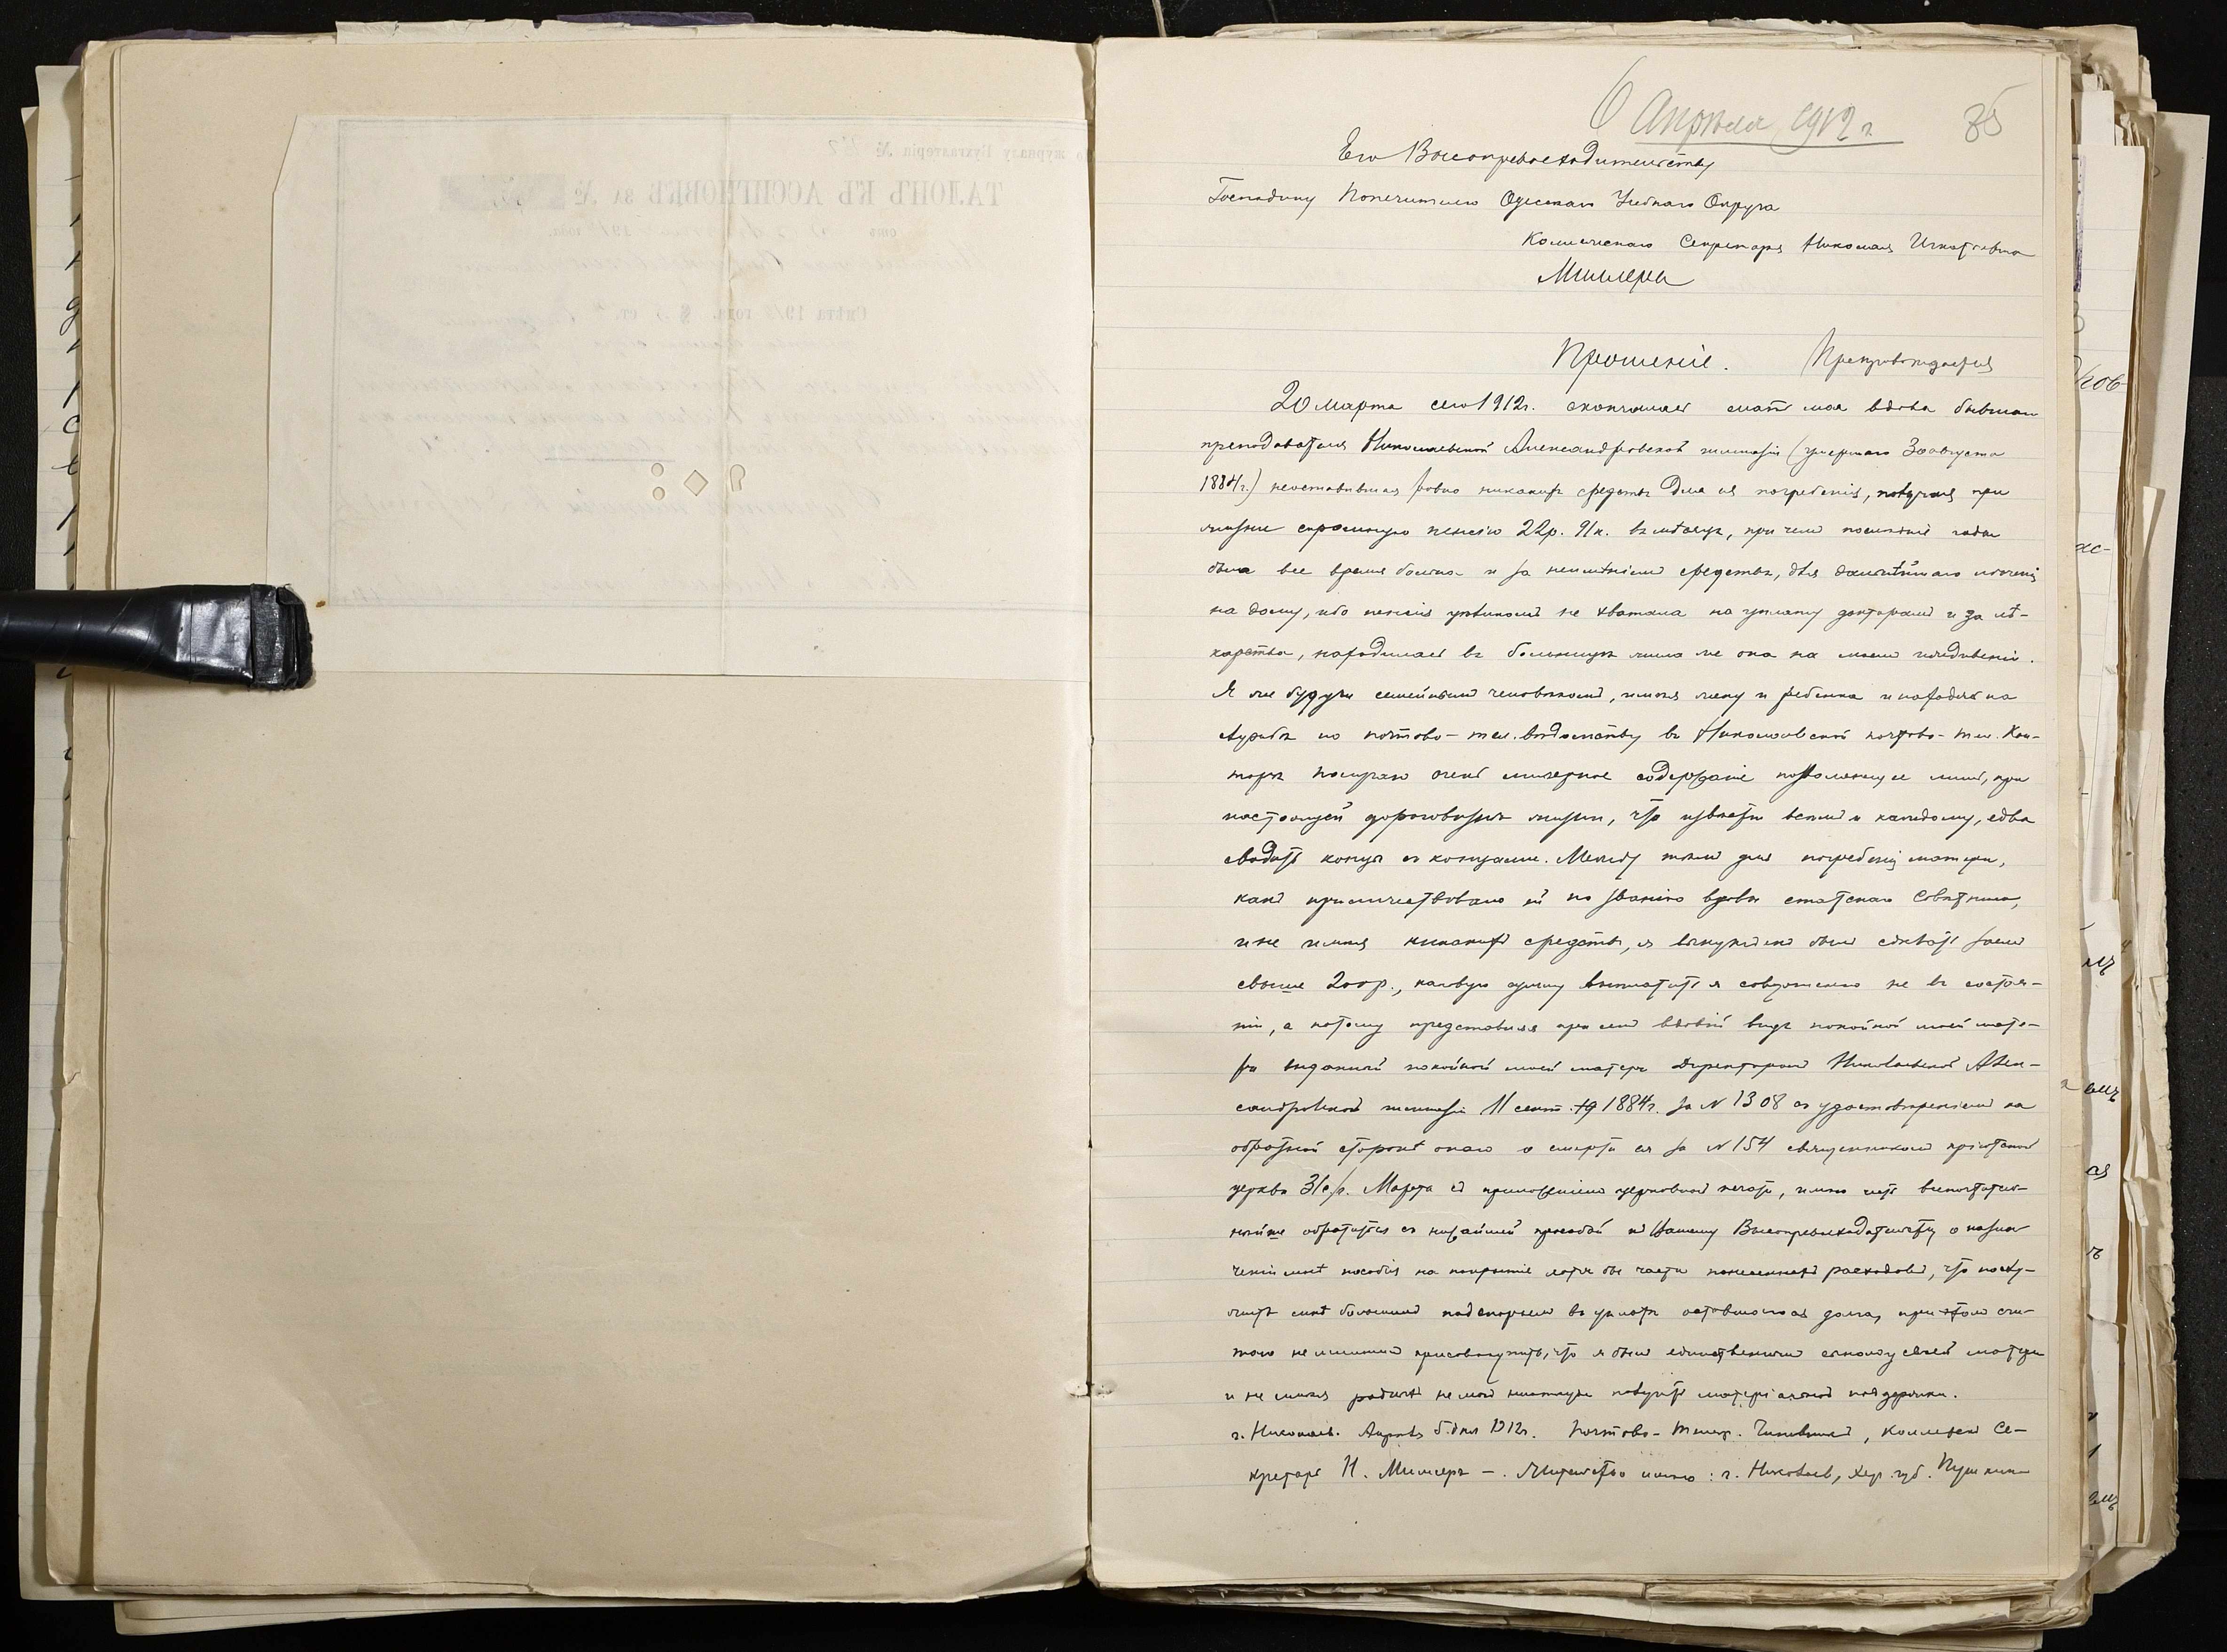 6 Апрѣля 1912 г.
35
Его Высокопревосходительству
Господину Попечителю Одесскаго Учебнаго Округа
Коллежскаго Секретаря Николая Игнатьевича
Миллера
Прошеніе.
20 Марта сего 1912г. скончалась мать моя вдова бывшаго
преподавателя Николаевской Александровской гимназіи (умершаго 30 августа
1884г.) неоставившая ровно никакихъ средствъ для ея погребенія, получая при
жизни скромную пенсію 22р. 91к. въ мѣсяцъ, при чемъ послѣдніе годы
была все время больна и за неимѣніемъ средствъ, для дальнѣйшаго лѣченія
на дому, ибо пенсіи не хватала на уплату докторамъ и за лѣ-
карства, находилась въ больницѣ жила же она на моемъ иждивеніи.
Я же будучи семейнымъ человѣкомъ, имѣя жену и ребенка и находясь на
службѣ по почтово-тел. вѣдомству въ Николаевской почтово-тел. Кон-
торѣ получаю очень мизерное содержаніе позволяющее мнѣ, при
настоящей дороговизнѣ жизни, что извѣстно всѣмъ и каждому, едва
сводить концы съ концами. Между тѣмъ для погребенія матери,
какъ приличествовало ей по званію вдовы статскаго Совѣтника,
и не имѣя никакихъ средствъ, я вынужденъ былъ сдѣлать заемъ
свыше 200р., каковую сумму выплатить я совершенно не въ состоя-
ніи, а потому представляя при семъ вдовій видъ покойной моей мате-
ри выданный покойной моей матери Директоромъ Николаевской Алек-
сандровской гимназіи 11 сент. 1884г. за № 1308 съ удостовѣреніемъ на
оборотной сторонѣ онаго о смерти ея за № 154 священникомъ
церкви 31 с/г. Марта съ приложеніемъ церковной печати, имѣю честь всепочтитель-
нѣйше обратиться съ нижайшей просьбой къ Вашему Высокопревосходительству о назна-
ченіи мнѣ пособія на покрытіе хотя бы части понесенныхъ расходовъ, что послу-
житъ мнѣ большимъ подспорьемъ въ уплатѣ оставшагося долга, при этомъ счи-
таю не лишнимъ присовокупить, что я былъ единственнымъ сыномъ у своей матери
и не имѣя родныхъ не могъ ниоткуда получить матеріальной поддержки.
г. Николаевъ. Апрѣля 5 дня 1912г. Почтово-Телегр. Чиновникъ, Коллежскій Се-
кретарь Н. Миллеръ —. Жительство имѣю: г. Николаевъ, Хер. губ.